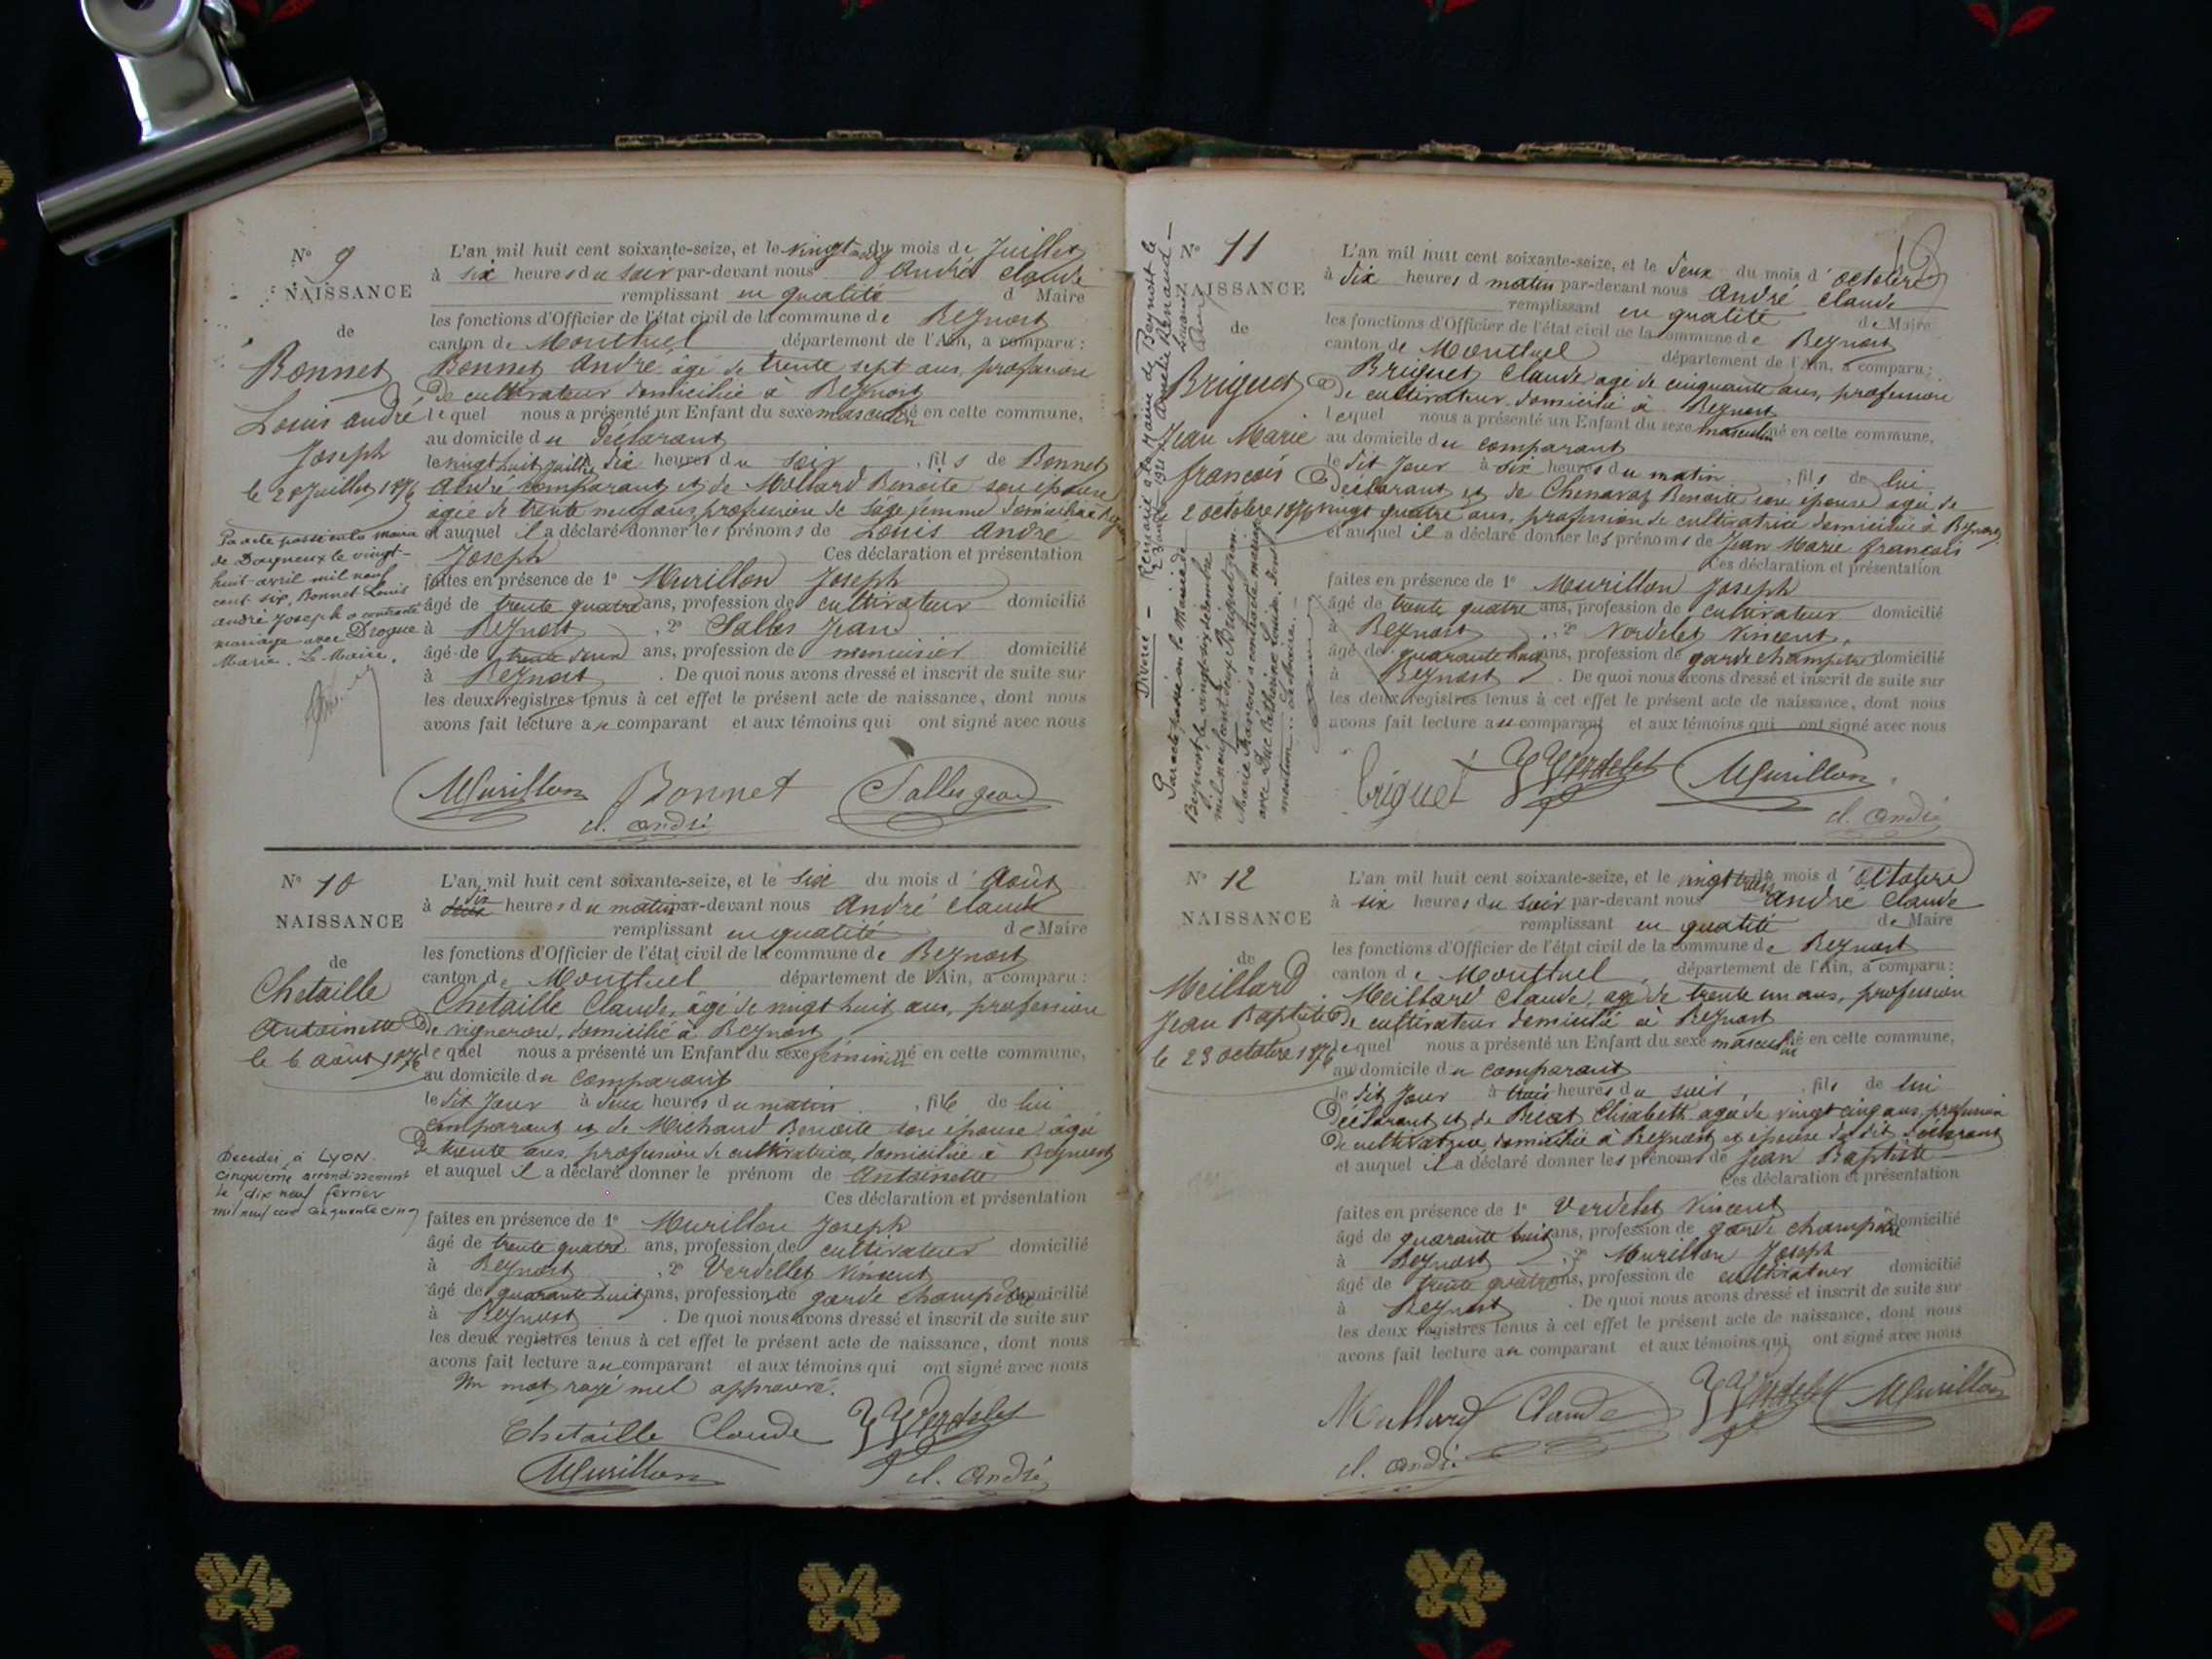 N° 9
NAISSANCE
de
Bonnet
Louis André
Joseph
le 28 Juillet 1876
Par acte passé en la mairie
de Dagneux le vingt-
huit avril mil neuf
cent six, Bonnet Louis
André Joseph a contracté
mariage avec Drogue
Marie. Le Maire,
L'an mil huit cent soixante-seize, et le vingt neuf du mois de Juillet
à six heures du soir par-devant nous André Claude
remplissant en qualité d Maire
les fonctions d'Officier de l'état civil de la commune de Beynost
canton de Montluel département de l'Ain, a comparu :
Bonnet André âgé de trente sept ans, profession
De cultivateur domicilié à Beynost
lequel nous a présenté un Enfant du sexe masculin né en cette commune,
au domicile du Déclarant
le vingt huit Juillet dix heures du soir , fils de Bonnet
André comparant et de Mollard Benoite son épouse
agée de trente neuf ans, profession de sage femme domiciliée à
et auquel il a déclaré donner les prénoms de Louis André
Joseph Ces déclaration et présentation
faites en présence de 1° Murillon Joseph
âgé de trente quatre ans, profession de cultivateur domicilié
à Beynost , 2° Salles Jean
âgé de trente deux ans, profession de menuisier domicilié
à Beynost . De quoi nous avons dressé et inscrit de suite sur
les deux registres tenus à cet effet le présent acte de naissance, dont nous
avons fait lecture au comparant et aux témoins qui ont signé avec nous
Murillon Bonnet Salles Jean
cl. André
N° 10
NAISSANCE
de
Chetaille
Antoinette
le 6 Août 1876
Décédée à LYON
cinquième arrondissement
le dix neuf février
mil neuf cent cinquante cinq
L'an mil huit cent soixante-seize, et le six du mois d'Août
dix
à deux heures du matin par-devant nous André Claude
remplissant en qualité de Maire
les fonctions d'Officier de l'état civil de la commune de Beynost
canton de Montluel département de l'Ain, a comparu :
Chetaille Claude, âgé de vingt huit ans, profession
De vigneron, domicilié à Beynost
lequel nous a présenté un Enfant du sexe féminin né en cette commune,
au domicile du comparant
le dit Jour à deux heures du matin , fille de lui
comparant et de Michaud Benoite son épouse âgée
De trente ans profession de cultivatrice domiciliée à Beynost
et auquel il a déclaré donner le prénom de Antoinette
Ces déclaration et présentation
faites en présence de 1° Murillon Joseph
âgé de trente quatre ans, profession de cultivateur domicilié
à Beynost , 2° Verdellet Vincent
âgé de quarante huit ans, profession de garde champêtre domicilié
à Beynost . De quoi nous avons dressé et inscrit de suite sur
les deux registres tenus à cet effet le présent acte de naissance, dont nous
avons fait lecture au comparant et aux témoins qui ont signé avec nous
Un mot rayé nul approuvé.
Chetaille Claude Verdelet
Murillon cl. André
N° 11
NAISSANCE
de
Briguet
Jean Marie
françois
2 octobre 1876
Divorcé – Remarié à la Mairie de Beynost le
1921 Amélie Renaud –
Par acte passé en la Mairie de
Beynost le vingt-six décembre
mil neuf cent deux, Briguet Jean
Marie François a contracté mariage
avec Duc Catherine Louise, dont
mention. Le Maire.
L'an mil huit cent soixante-seize, et le deux du mois d'octobre
à dix heures d matin par-devant nous André Claude
remplissant en qualité de Maire
les fonctions d'Officier de l'état civil de la commune de Beynost
canton de Montluel département de l'Ain, a comparu :
Briguet Claude agé de cinquante ans, profession
De cultivateur domicilié à Beynost
lequel nous a présenté un Enfant du sexe masculin né en cette commune,
au domicile du comparant
le dit Jour à six heures du matin , fils de lui
Déclarant et de Chenavaz Benoite son épouse agée de
vingt quatre ans, profession de cultivatrice domiciliée à Beynost
et auquel il a déclaré donner les prénoms de Jean Marie françois
Ces déclaration et présentation
faites en présence de 1° Murillon Joseph
âgé de trente quatre ans, profession de cultivateur domicilié
à Beynost , 2° Verdelet Vincent
âgé de quarante huit ans, profession de garde champêtre domicilié
à Beynost . De quoi nous avons dressé et inscrit de suite sur
les deux registres tenus à cet effet le présent acte de naissance, dont nous
avons fait lecture au comparant et aux témoins qui ont signé avec nous
briguet Verdelet Murillon
cl. André
N° 12
NAISSANCE
de
Meillard
Jean Baptiste
le 23 octobre 1876
L'an mil huit cent soixante-seize, et le vingt trois du mois d'Octobre
à six heures du soir par-devant nous André Claude
remplissant en qualité de Maire
les fonctions d'Officier de l'état civil de la commune de Beynost
canton de Montluel département de l'Ain, a comparu :
Meillard Claude, agé de trente un ans, profession
De cultivateur domicilié à Beynost
lequel nous a présenté un Enfant du sexe masculin né en cette commune,
au domicile du comparant
le dit Jour à trois heures du soir, fils de lui
Déclarant et de Elisabeth agée de vingt cinq ans, profession
De cultivatrice domiciliée à Beynost et épouse du dit Déclarant
et auquel il a déclaré donner les prénoms de Jean Baptiste
Ces déclaration et présentation
faites en présence de 1° Verdelet Vincent
âgé de quarante huit ans, profession de garde champêtre domicilié
à Beynost , 2° Murillon Joseph
âgé de trente quatre ans, profession de cultivateur domicilié
à Beynost . De quoi nous avons dressé et inscrit de suite sur
les deux registres tenus à cet effet le présent acte de naissance, dont nous
avons fait lecture au comparant et aux témoins qui ont signé avec nous
Meillard Claude Verdelet Murillon
cl. André